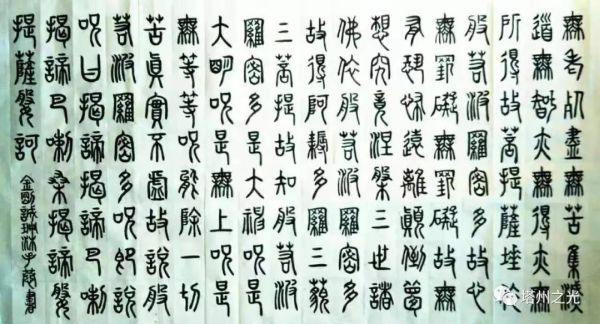 無老死盡無苦集滅
道無智亦無得亦無
所得故菩提薩埵依
般若波羅密多故心
無罣礙無罣礙故無
有恐怖遠離顛倒夢
想究竟涅槃三世諸
佛依般若波羅密多
故得阿耨多羅三藐
三菩提故知般若波
羅密多是大神呪是
大明呪是無上呪是
無等等呪能除一切
苦真實不虛故說般
若波羅密多呪即說
呪曰揭諦揭諦巴喇
揭諦巴喇桑揭諦般
提薩婆訶
沐手敬書
塔州之光